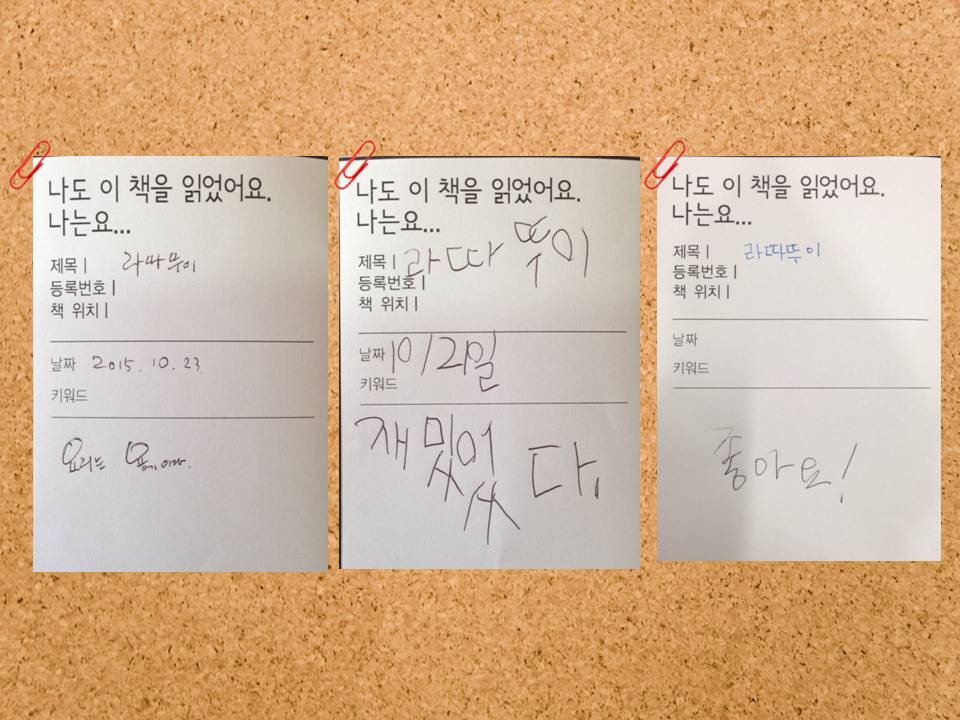 나도 이 책을 읽었어요.
나는요...
제목 | 라따뚜이
등록번호 |
책 위치 |
날짜 2015. 10. 23
키워드
요리는 용기이다.
나도 이 책을 읽었어요.
나는요...
제목 | 라따뚜이
등록번호 |
책 위치 |
날짜 10/21일
키워드
재밌었다.
나도 이 책을 읽었어요.
나는요...
제목 | 라따뚜이
등록번호 |
책 위치 |
날짜
키워드
좋아요!